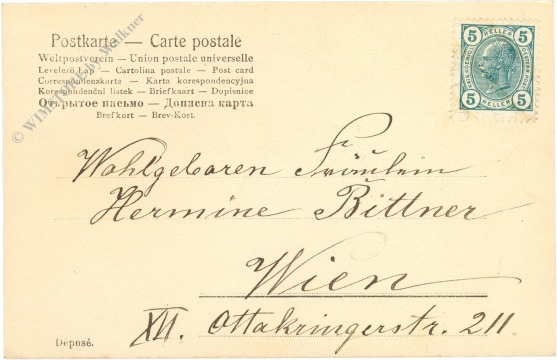 Postkarte — Carte postale
Weltpostverein — Union postale universelle
Levelező Lap — Cartolina postale — Post card
Correspondenzkarte — Karta korespondencyjna
Korespondenční listek — Briefkaart — Dopisnice
Открытое письмо — Дописна карта
Brefkort — Brev-Kort.
5 HELLER 5
5 HELLER 5
Wohlgeboren Fräulein
Hermine Bittner
Wien
XVI. Ottakringerstr. 211
Déposé.